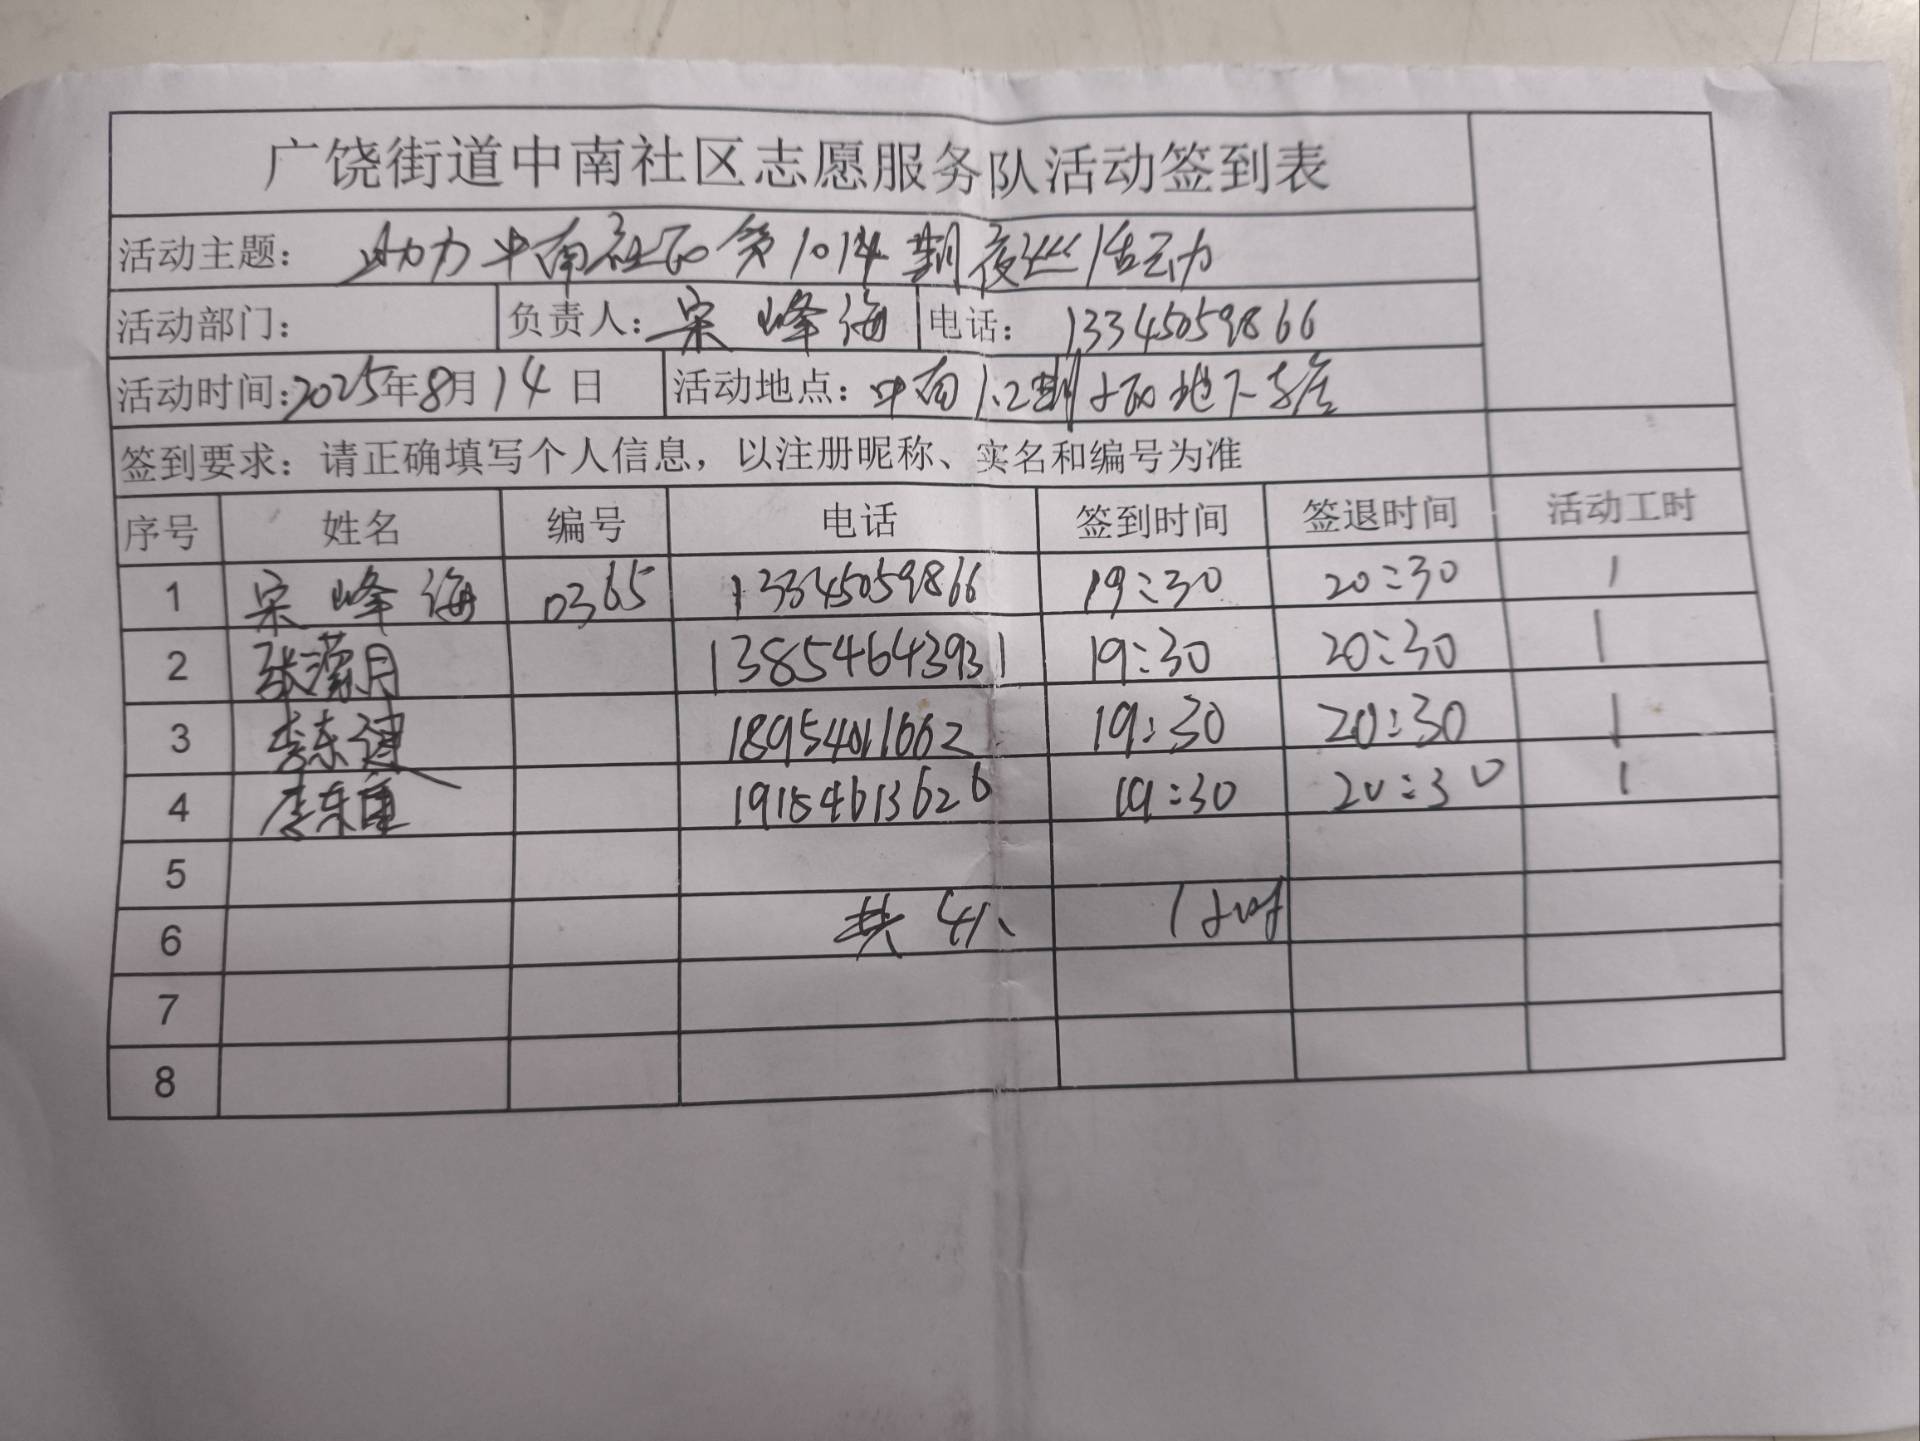 广饶街道中南社区志愿服务队活动签到表
活动主题： 助力中南社区第1014期夜巡活动
活动部门： 负责人：宋峰海 电话： 13345059866
活动时间：2025年8月14日 活动地点：中南1.2期小区地下车库
签到要求：请正确填写个人信息，以注册昵称、实名和编号为准
序号 姓名 编号 电话 签到时间 签退时间 活动工时
1 宋峰海 0365 13345059866 19:30 20:30 1
2 张 月 13854643931 19:30 20:30 1
3 李东建 18954011662 19:30 20:30 1
4 李东 19154613626 19:30 20:30 1
5
6 共4人 1小时
7
8